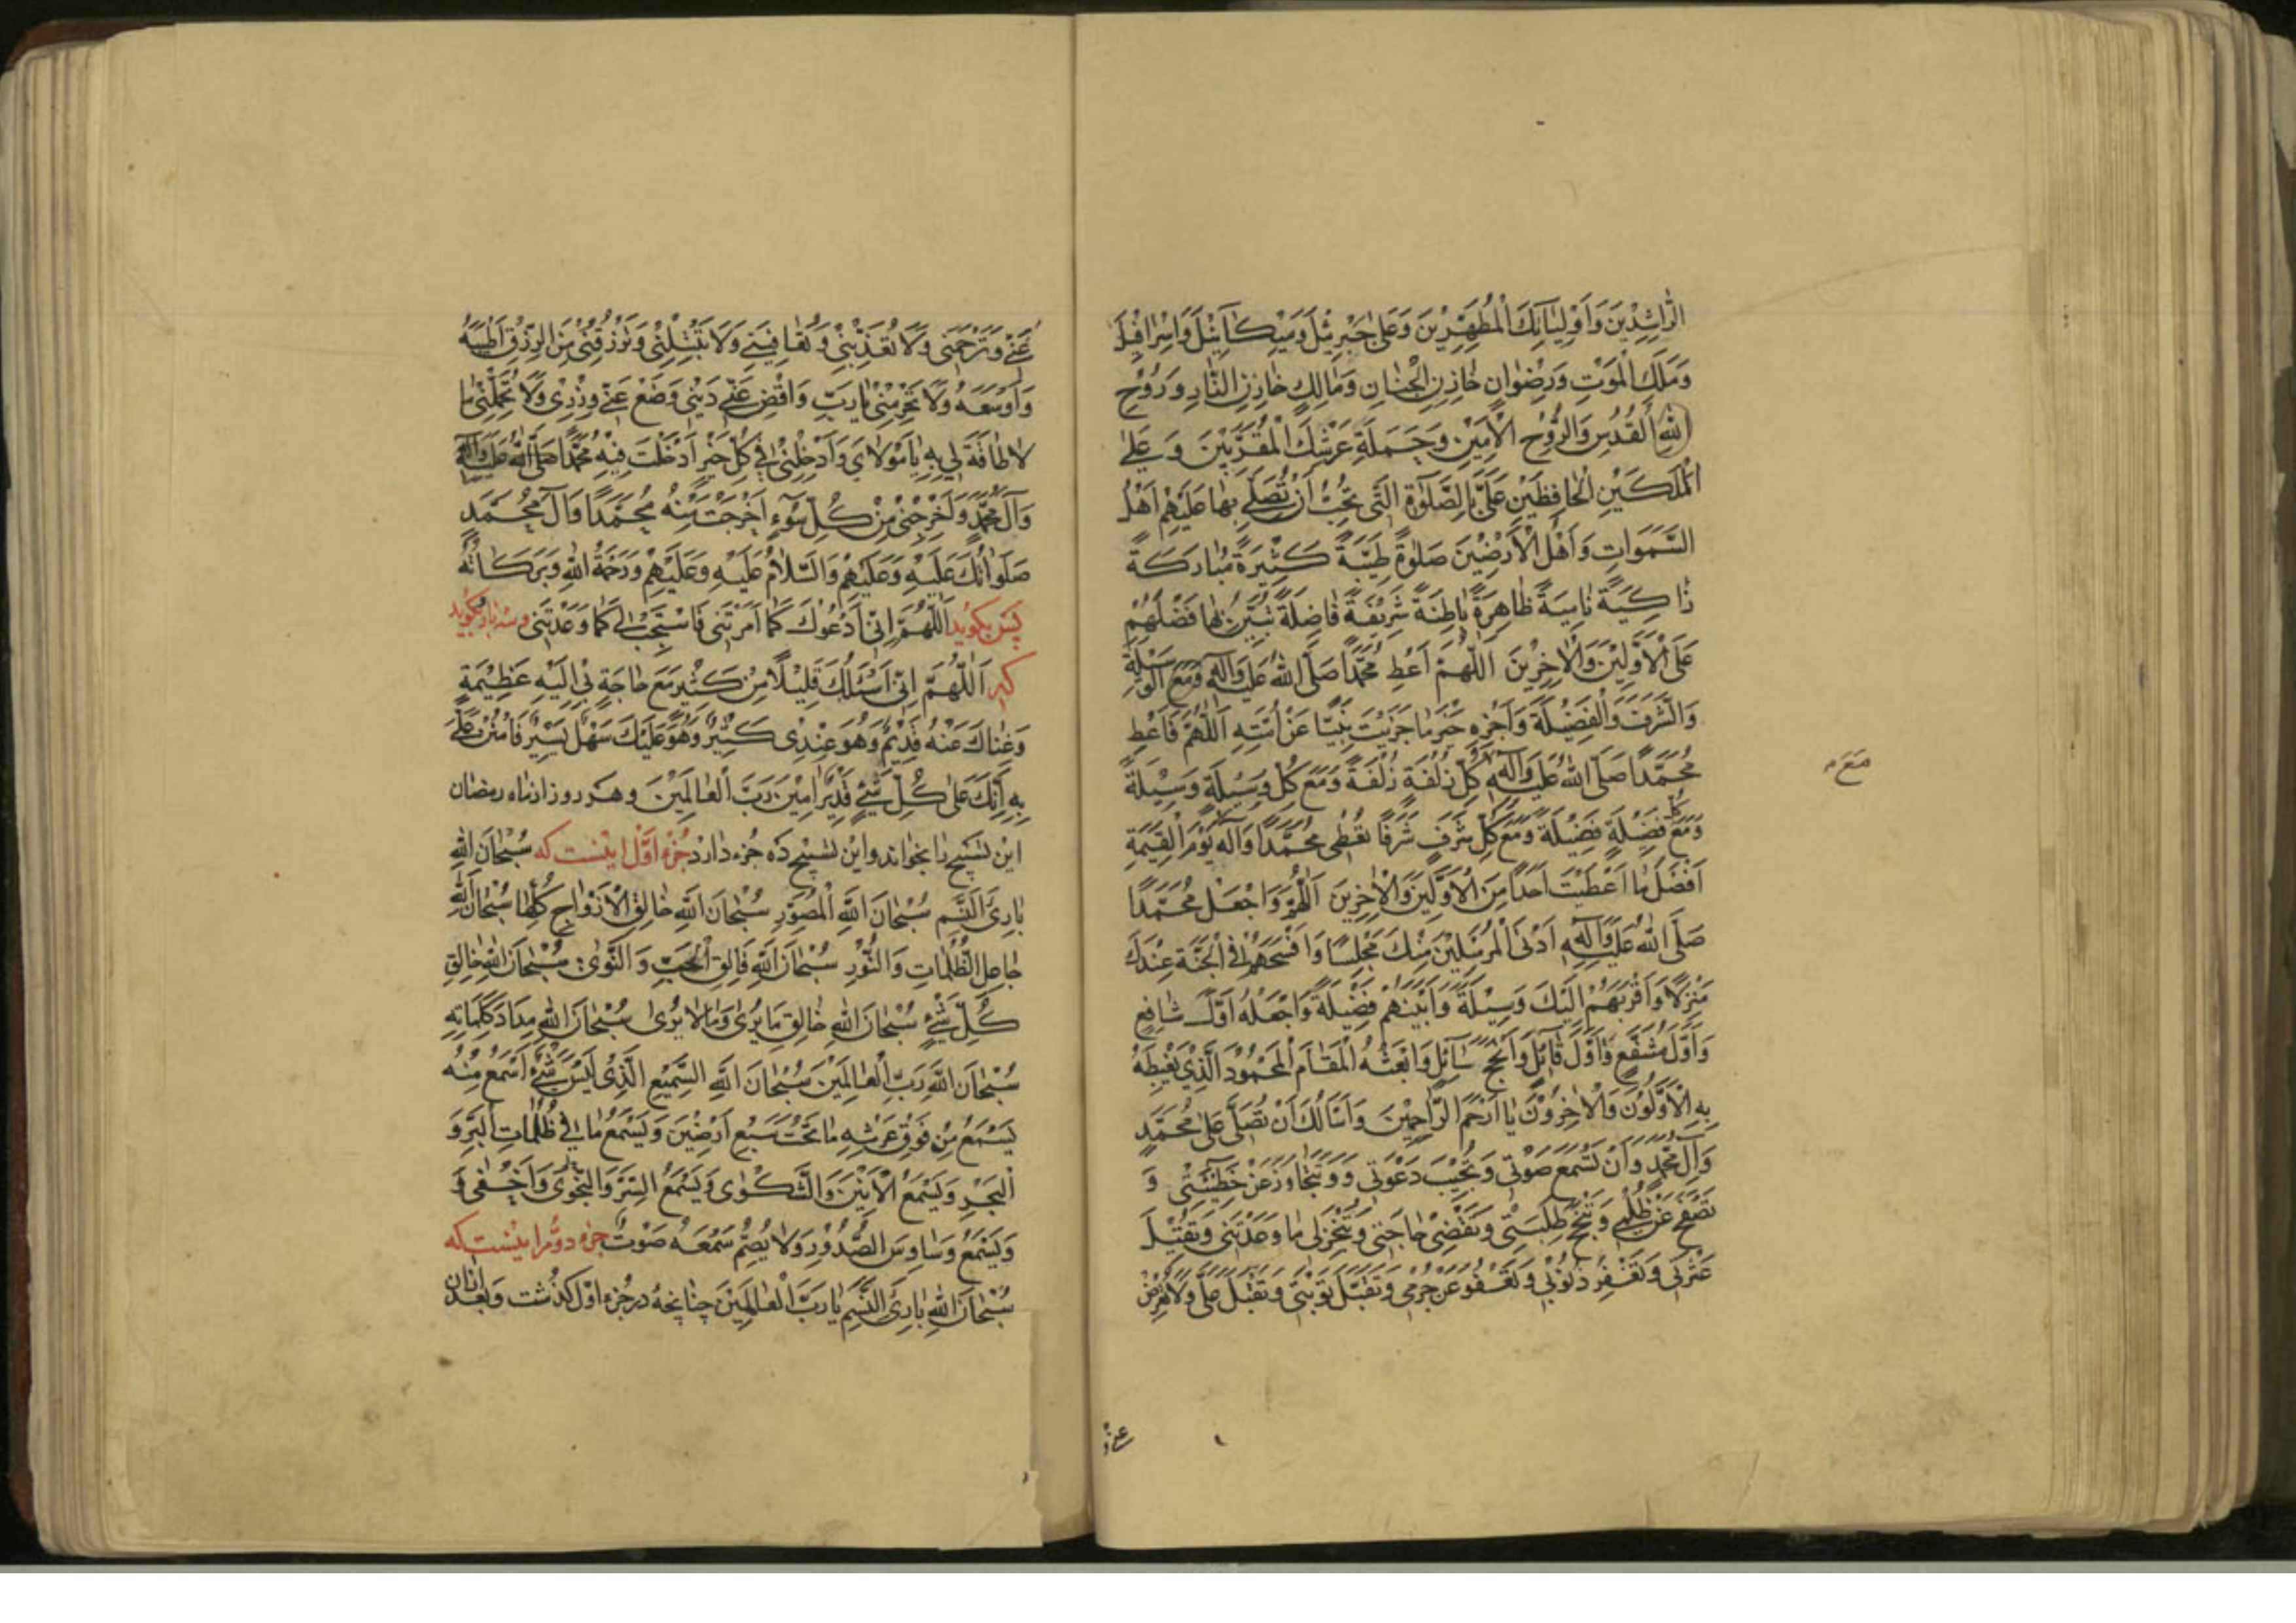 الرَّاشِدِينَ وَاَوْلِيَائِكَ الْمُطَهَّرِينَ وَعَلى جَبْرَئِيلَ وَمِيكَائِيلَ وَاِسْرَافِيلَ
وَمَلَكِ الْمَوْتِ وَرِضْوانِ خازِنِ الْجِنانِ وَمالِكٍ خازِنِ النَّارِ وَرُوْحِ
الْقُدُسِ وَالرُّوْحِ الْاَمِيْنِ وَحَمَلَةِ عَرْشِكَ الْمُقَرَّبِيْنَ وَعَلَى
الْمَلَكَيْنِ الْحافِظَيْنِ عَلَيَّ بِالصَّلٰوةِ الَّتى تُحِبُّ اَنْ تُصَلِّىَ بِها عَلَيْهِمْ اَهْلُ
السَّمٰوَاتِ وَاَهْلُ الْاَرَضِيْنَ صَلوةً طَيِّبَةً كَثِيْرَةً مُبارَكَةً
زاكِيَةً نامِيَةً ظاهِرَةً باطِنَةً شَرِيْفَةً فاضِلَةً تُبَيِّنُ بِها فَضْلَهُمْ
عَلَى الْاَوَّلِيْنَ وَالْاخِرِيْنَ اَللّٰهُمَّ اَعْطِ مُحَمَّدًا صَلَّى اللهُ عَلَيْهِ وَآلِهِ الْوَسِيْلَةَ
وَالشَّرَفَ وَالْفَضِيْلَةَ وَاَجْزِهِ خَيْرَ ما جَزَيْتَ نَبِيًّا عَنْ اُمَّتِهِ اَللّٰهُمَّ فَاَعْطِ
مُحَمَّدًا صَلَّى اللهُ عَلَيْهِ وَآلِهِ مَعَ كُلِّ زُلْفَةٍ زُلْفَةً وَمَعَ كُلِّ وَسِيْلَةٍ وَسِيْلَةً
مَعَ
وَمَعَ كُلِّ فَضِيْلَةٍ فَضِيْلَةً وَمَعَ كُلِّ شَرَفٍ شَرَفًا تُعْطِى مُحَمَّدًا وَآلَهُ يَوْمَ الْقِيٰمَةِ
اَفْضَلَ ما اَعْطَيْتَ اَحَدًا مِنَ الْاَوَّلِيْنَ وَالْاخِرِيْنَ اَللّٰهُمَّ وَاجْعَلْ مُحَمَّدًا
صَلَّى اللهُ عَلَيْهِ وَآلِهِ اَدْنَى الْمُرْسَلِيْنَ مِنْكَ مَجْلِسًا وَاَفْسَحَهُمْ فِى الْجَنَّةِ عِنْدَكَ
مَنْزِلًا وَاَقْرَبَهُمْ اِلَيْكَ وَسِيْلَةً وَاَبْيَنَهُمْ فَضِيْلَةً وَاجْعَلْهُ اَوَّلَ شافِعٍ
وَاَوَّلَ مُشَفَّعٍ وَاَوَّلَ قائِلٍ وَاَنْجَحَ سائِلٍ وَابْعَثْهُ الْمَقامَ الْمَحْمُوْدَ الَّذِيْ يَغْبِطُهُ
بِهِ الْاَوَّلُوْنَ وَالْاخِرُوْنَ يا اَرْحَمَ الرَّاحِمِيْنَ وَاَسْاَلُكَ اَنْ تُصَلِّىَ عَلى مُحَمَّدٍ
وَآلِ مُحَمَّدٍ وَاَنْ تَسْمَعَ صَوْتِى وَتُجِيْبَ دَعْوَتِى وَتَتَجاوَزَ عَنْ خَطِيْئَتِى وَ
تَصْفَحَ عَنْ ظُلْمِى وَتُنْجِحَ طَلِبَتِى وَتَقْضِىَ حاجَتِى وَتُنْجِزَلِى ما وَعَدْتَنِى وَتُقِيْلَ
عَثْرَتِى وَتَغْفِرَ ذُنُوْبِى وَتَعْفُوَ عَنْ جُرْمِى وَتَقْبَلَ تَوْبَتِى وَتُقْبِلَ عَلَيَّ وَلا تُعْرِضَ
عَنِّى وَ
عَنِّى وَتَرْحَمَنِى وَلا تُعَذِّبَنِى وَتُعافِيَنِى وَلا تَبْتَلِيَنِى وَتَرْزُقَنِى مِنَ الرِّزْقِ اَطْيَبَهُ
وَاَوْسَعَهُ وَلا تَحْرِمْنِى يا رَبِّ وَاقْضِ عَنِّى دَيْنِى وَضَعْ عَنِّى وِزْرِى وَلا تُحَمِّلْنِى ما
لا طاقَةَ لِى بِهِ يا مَوْلاىَ وَاَدْخِلْنِى فِى كُلِّ خَيْرٍ اَدْخَلْتَ فِيْهِ مُحَمَّدًا صَلَّى اللهُ عَلَيْهِ وَآلِهِ
وَآلَ مُحَمَّدٍ وَاَخْرِجْنِى مِنْ كُلِّ سُوْءٍ اَخْرَجْتَ مِنْهُ مُحَمَّدًا وَآلَ مُحَمَّدٍ
صَلَواتُكَ عَلَيْهِ وَعَلَيْهِمْ وَالسَّلامُ عَلَيْهِ وَعَلَيْهِمْ وَرَحْمَةُ اللهِ وَبَرَكاتُهُ
پس بگوید اَللّٰهُمَّ اِنِّى اَدْعُوْكَ كَما اَمَرْتَنِى فَاسْتَجِبْ لِى كَما وَعَدْتَنِى وسه بار بگوید
که اَللّٰهُمَّ اِنِّى اَسْئَلُكَ قَلِيْلًا مِنْ كَثِيْرٍ مَعَ حاجَةٍ بِى اِلَيْهِ عَظِيْمَةٍ
وَغِناكَ عَنْهُ قَدِيْمٌ وَهُوَ عِنْدِى كَثِيْرٌ وَهُوَ عَلَيْكَ سَهْلٌ يَسِيْرٌ فَامْنُنْ عَلَيَّ
بِهِ اِنَّكَ عَلى كُلِّ شَىْءٍ قَدِيْرٌ امِيْنَ رَبَّ الْعالَمِيْنَ وهر روز از ماه رمضان
این تسبیح را بخواند واین تسبیح ده جزء دارد جزء اوّل اینست که سُبْحانَ اللهِ
بارِئِ النَّسَمِ سُبْحانَ اللهِ الْمُصَوِّرِ سُبْحانَ اللهِ خالِقِ الْاَزْواجِ كُلِّها سُبْحانَ اللهِ
جاعِلِ الظُّلُماتِ وَالنُّوْرِ سُبْحانَ اللهِ فالِقِ الْحَبِّ وَالنَّوٰى سُبْحانَ اللهِ خالِقِ
كُلِّ شَىْءٍ سُبْحانَ اللهِ خالِقِ ما يُرٰى وَما لا يُرٰى سُبْحانَ اللهِ مِدادَ كَلِماتِهِ
سُبْحانَ اللهِ رَبِّ الْعالَمِيْنَ سُبْحانَ اللهِ السَّمِيْعِ الَّذِى لَيْسَ شَىْءٌ اَسْمَعَ مِنْهُ
يَسْمَعُ مِنْ فَوْقِ عَرْشِهِ ما تَحْتَ سَبْعِ اَرَضِيْنَ وَيَسْمَعُ ما فِى ظُلُماتِ الْبَرِّ وَ
الْبَحْرِ وَيَسْمَعُ الْاَنِيْنَ وَالشَّكْوٰى وَيَسْمَعُ السِّرَّ وَالنَّجْوٰى وَاَخْفٰى وَ
وَيَسْمَعُ وَساوِسَ الصُّدُوْرِ وَلا يُصِمُّ سَمْعَهُ صَوْتٌ جزء دوّم اینست که
سُبْحانَ اللهِ بارِئِ النَّسَمِ يا رَبَّ الْعالَمِيْنَ چنانچه در جزء اوّل گذشت وبعد از ان